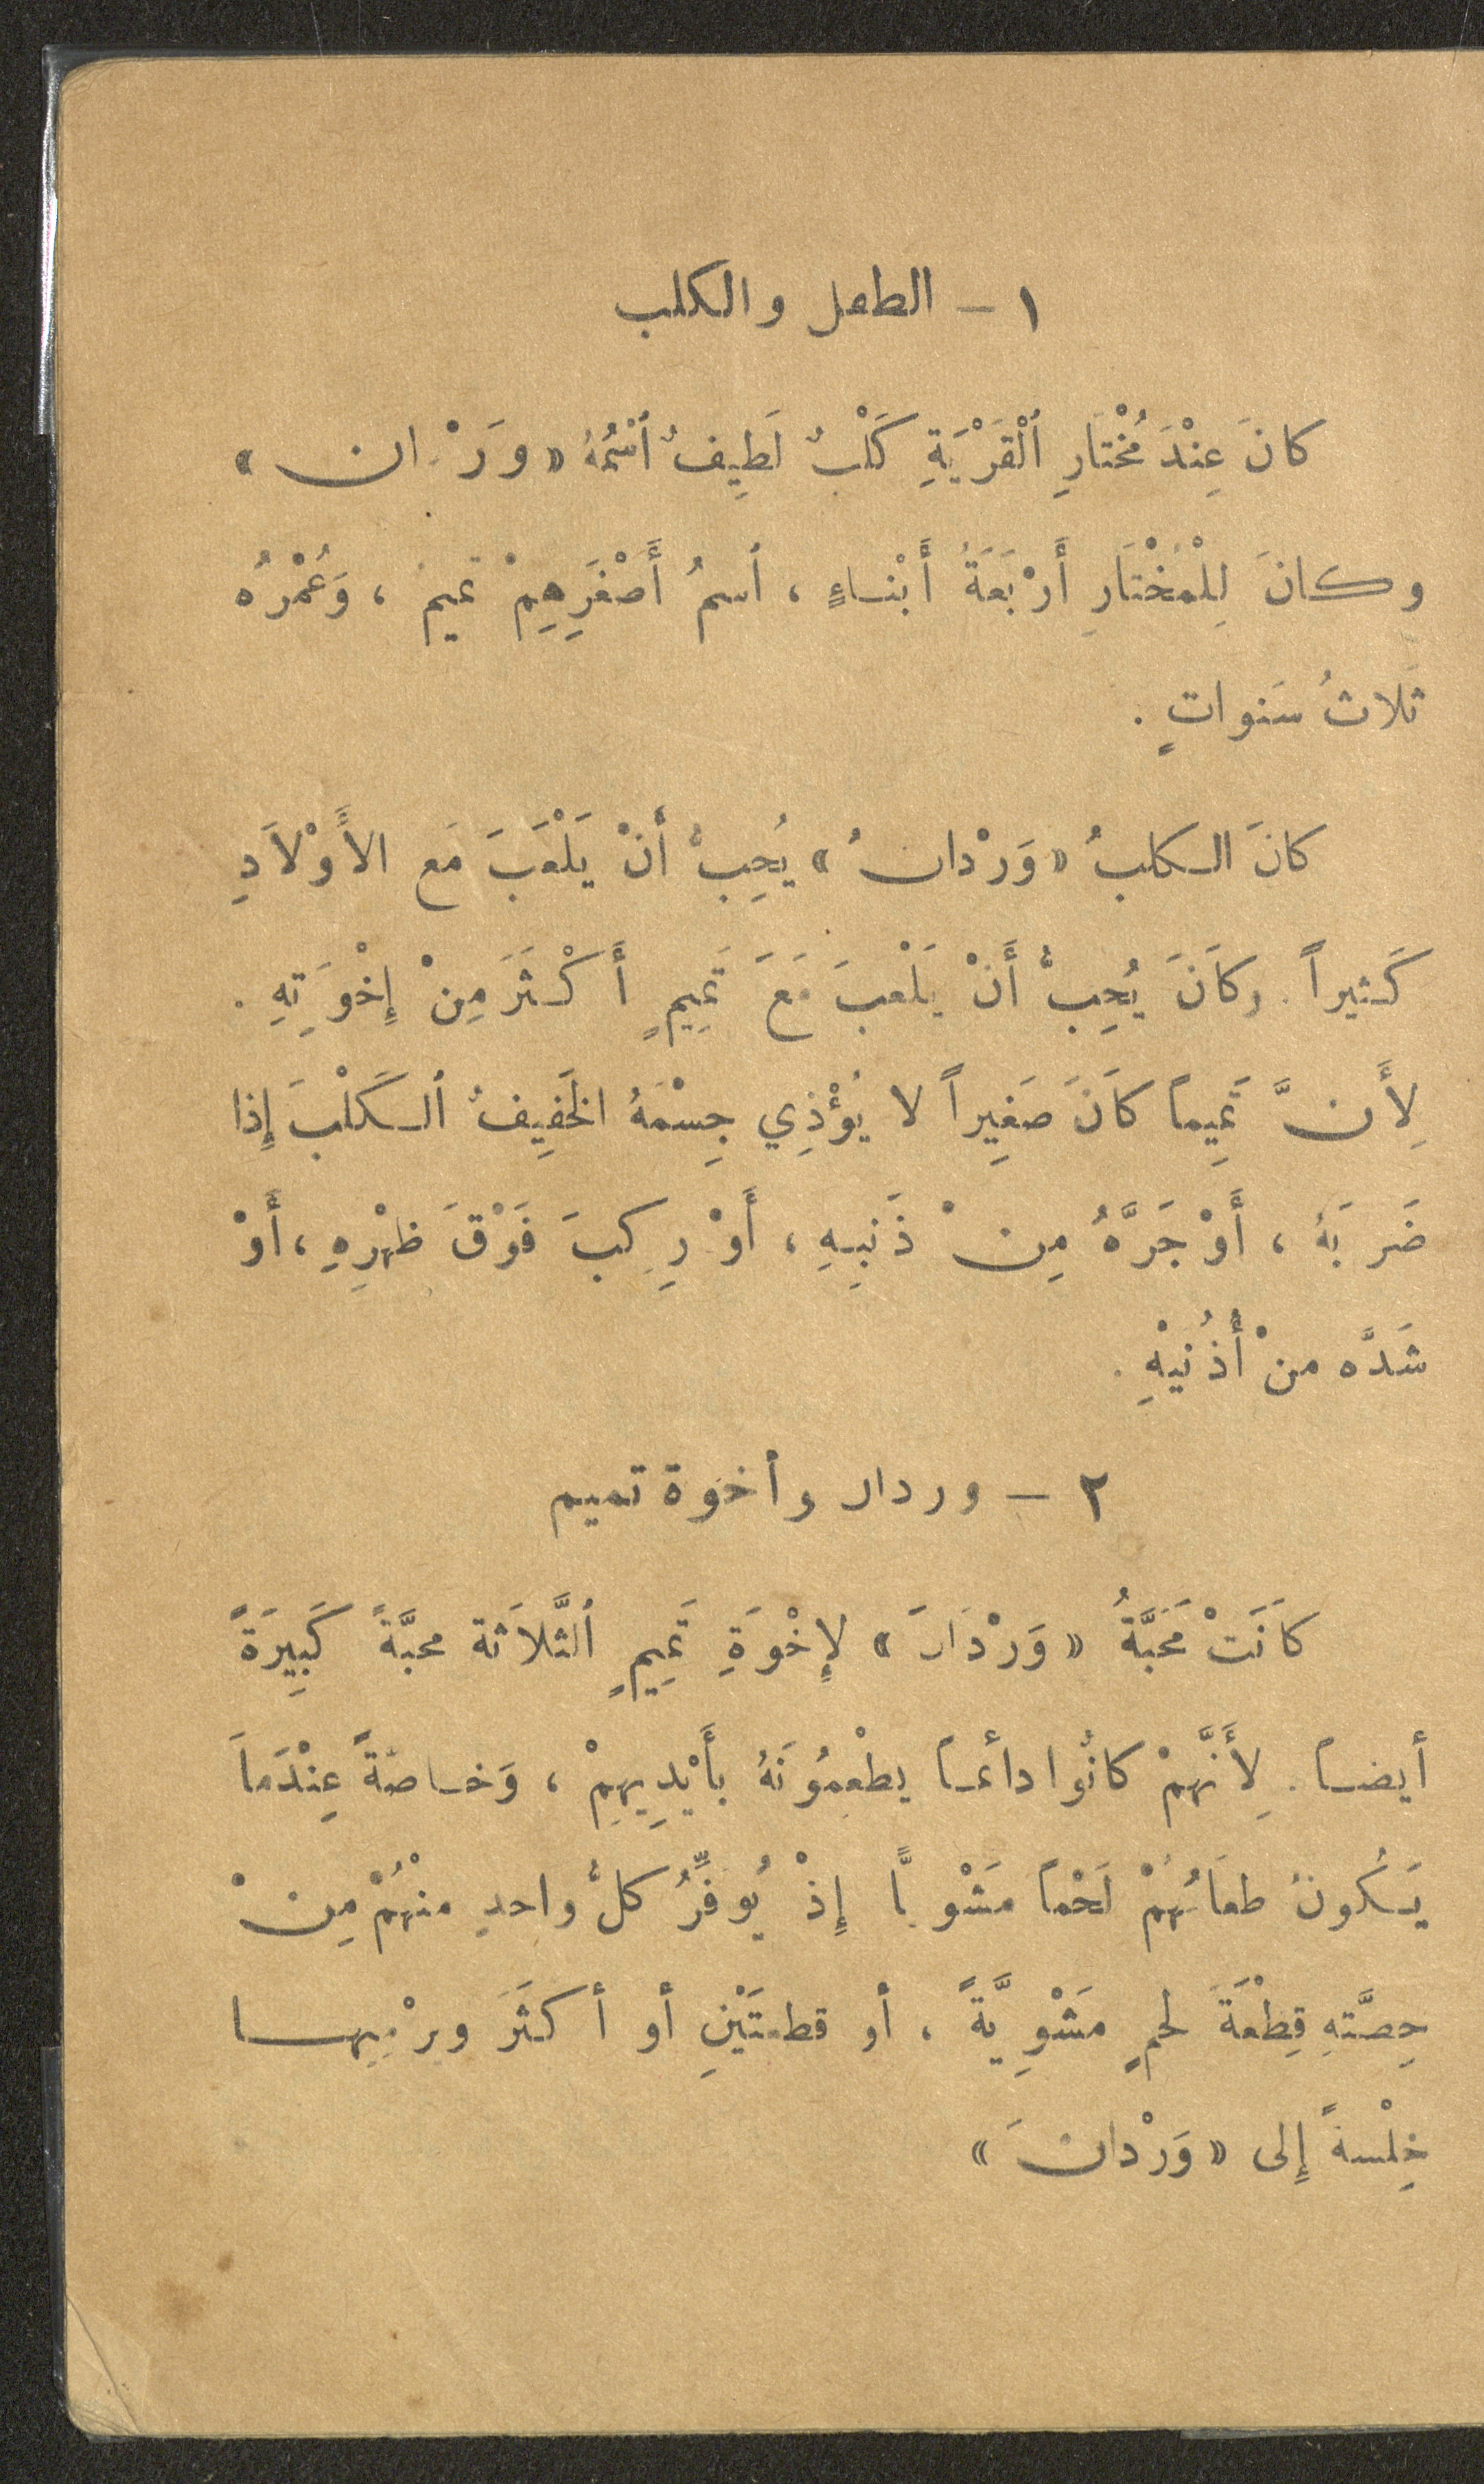 ١ – الطفل والكلب
كانَ عِنْدَ مُخْتَارِ ٱلْقَرْيَةِ كَلْبٌ لَطِيفٌ ٱسْمُهُ «وَرْدان»
وكانَ لِلْمُخْتَارِ أَرْبَعَةُ أَبْناءٍ ، ٱسمُ أَصْغَرِهِمْ تميمٌ ، وَعُمْرُه
ثَلاثُ سَنواتٍ .
كانَ الكلبُ «وَرْدانُ» يُحِبُّ أنْ يَلْعَبَ مَع الأَوْلاَدِ
كَثيراً . وكاَنَ يُحِبُّ أَنْ يَلْعبَ مَعَ تَمِيمٍ أَكْثَرَ مِنْ إِخْوَتِهِ .
لِأَنَّ تَمِيماً كاَنَ صَغِيراً لا يُؤْذِي جِسْمُهُ الخَفِيفُ ٱلكَلْبَ إِذا
ضَرَبَهُ ، أَوْ جَرَّهُ مِنْ ذَنَبِهِ ، أَوْ رِكبَ فَوْقَ ظهْرِهِ ، أَوْ
شَدَّه منْ أُذُنَيْهِ .
٢ – وردان وأخوة تميم
كاَنَتْ مَحَبَّةُ «وَرْدَانَ» لإِخْوَةِ تَمِيمٍ ٱلثَّلاَثَة محبَّةً كَبِيرَةً
أيضاً . لِأَنَّهمْ كانُوا دائماً يطْعِمُونَهُ بأَيْدِيهِمْ ، وَخاصّةً عِنْدَماَ
يَكُونُ طعَامُهُمْ لَحْماً مَشْوِيًّا إِذْ يُوَفِّرُ كلُّ واحدٍ منْهُمْ مِنْ
حِصَّتهِ قِطْعَةَ لحمٍ مَشْوِيَّةً ، أو قطعتَيْنِ أو أكثَرَ ويرْمِيها
خِلْسةً إِلى «وَرْدانَ»